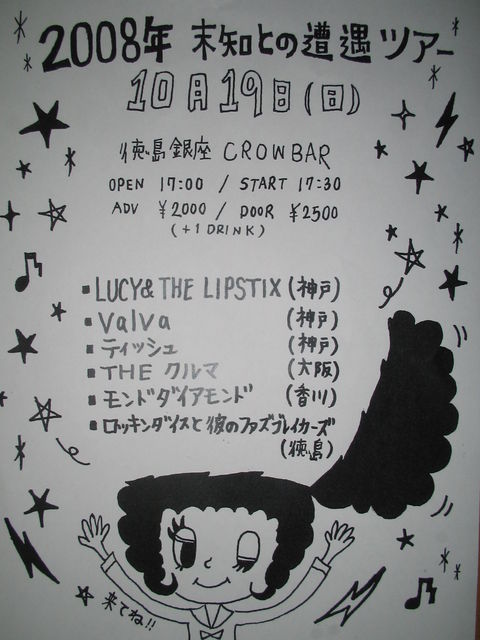 2008年 末知との遭遇 ツアー
10月19日(日)
徳島銀座 CROWBAR
OPEN 17:00 / START 17:30
ADV ¥2000 / DOOR ¥2500
(+1 DRINK)
▪ LUCY& THE LIPSTIX (神戸)
▪ Valva (神戸)
▪ ティッシュ (神戸)
▪ THE クルマ (大阪)
▪ モンドダイアモンド (香川)
▪ ロッキンダイスと彼のファズブレイカーズ
(徳島)
来てね!!